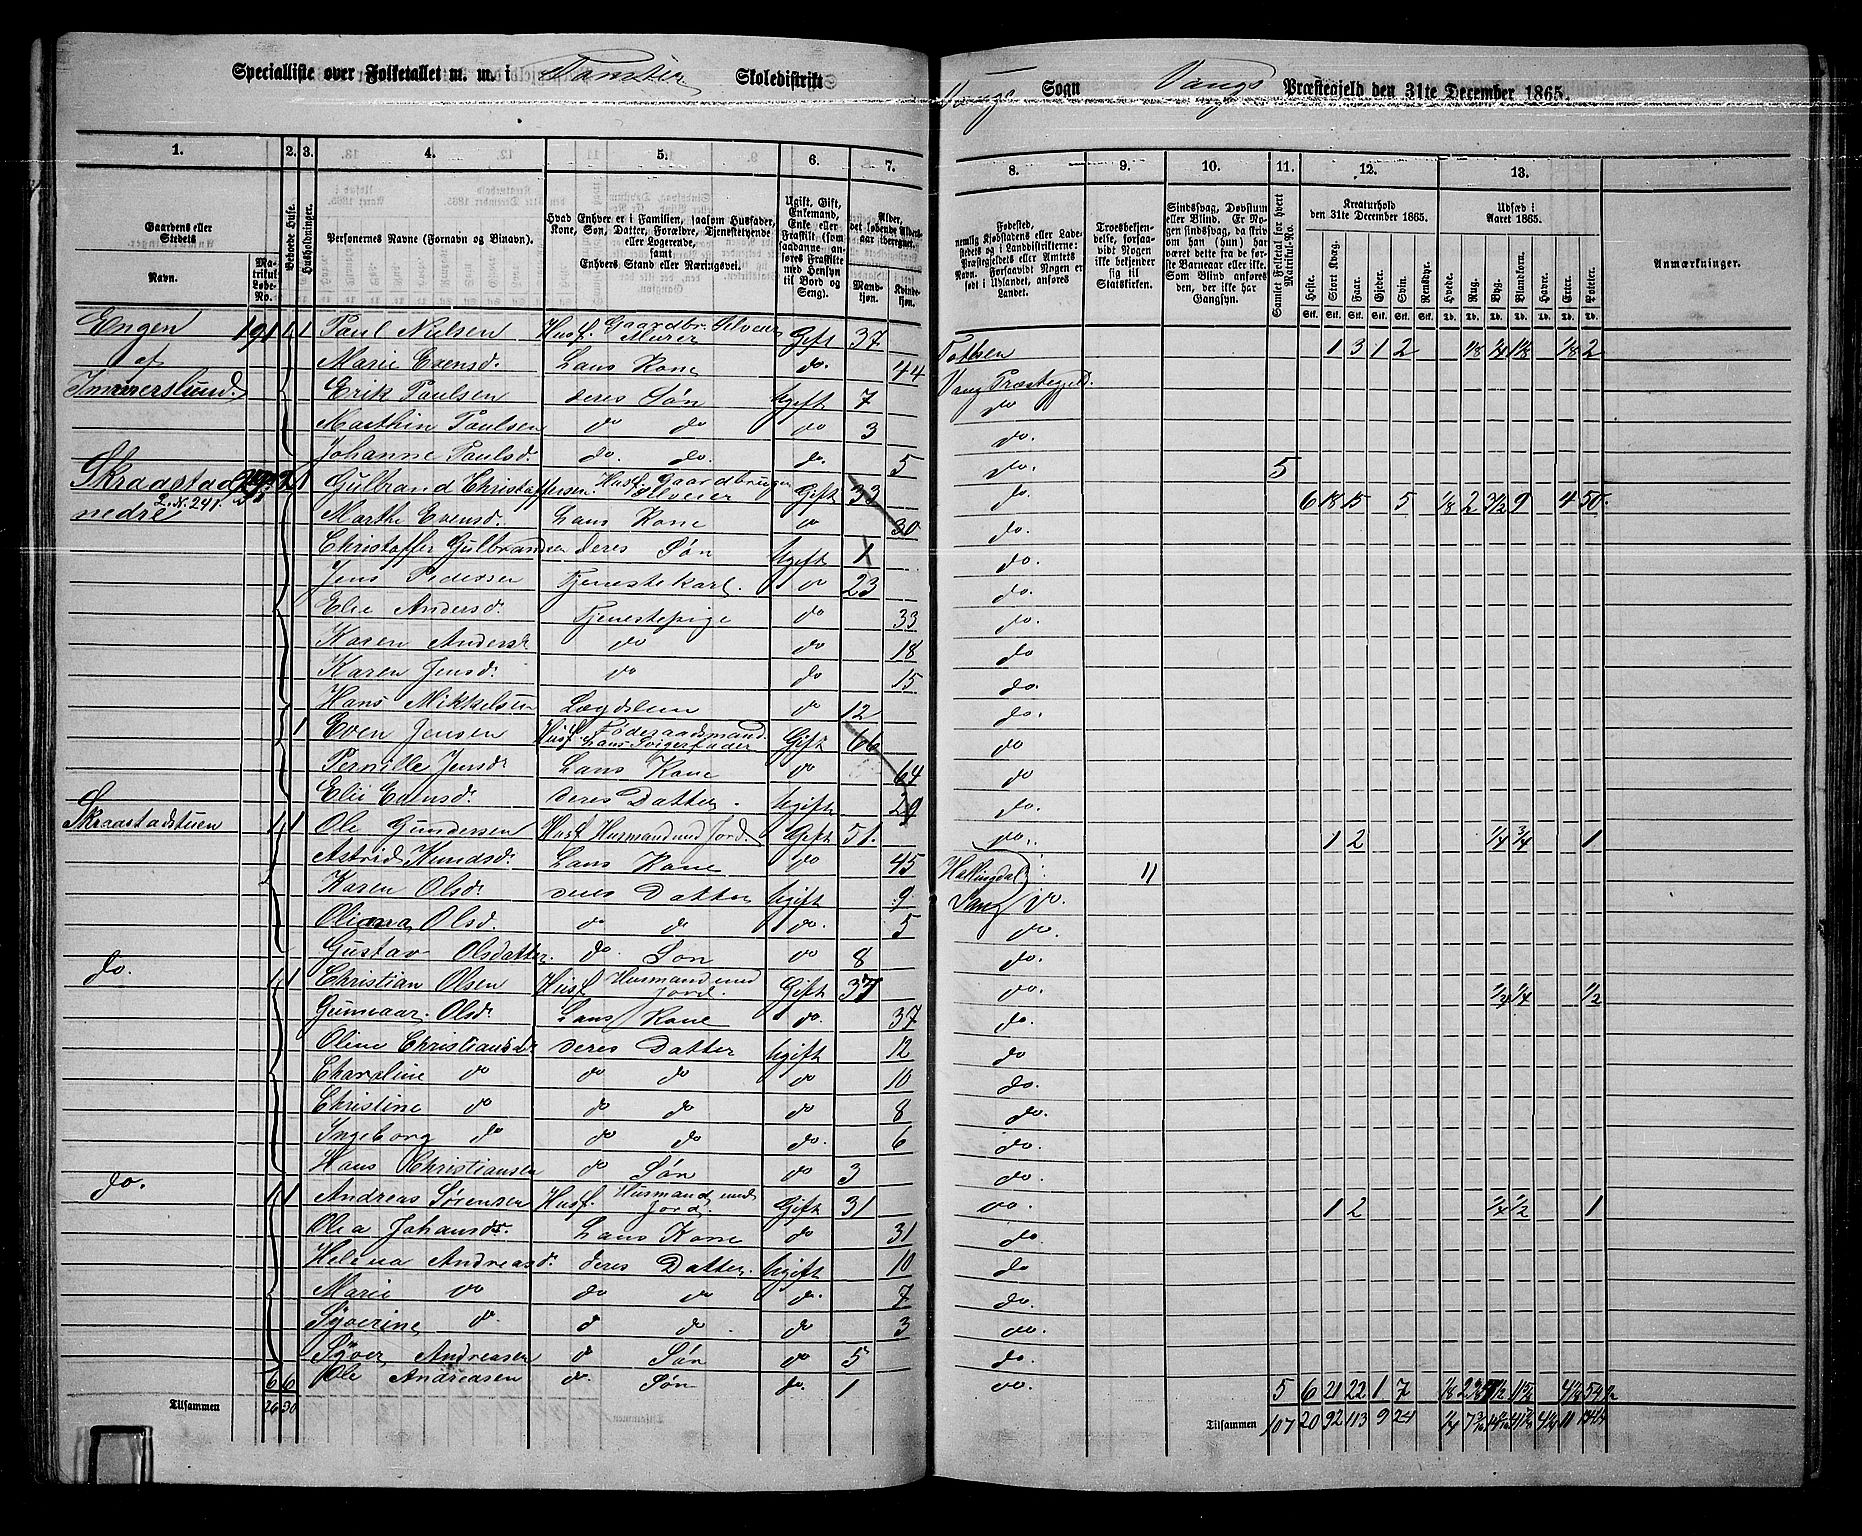 Specialliste over Folketallet m. m. i Skoledistrikt
Vangs Sogn Vangs Præstegjeld den 31te December 1865.
1. 2. 3. 4. 5. 6. 7.
8. 9. 10. 11. 12. 13.
Gaardens eller Stedets
Navn. Matrikul Løbe-No.
Beboede Huse.
Husholdninger.
Personernes Navne (Fornavn og Binavn).
Hvad Enhver er i Familien, saasom Husfader, Kone, Søn, Datter, Forældre, Tjenestetyende eller Logerende, samt Enhvers Stand eller Næringsvei.
Ugift, Gift, Enkemand, Enke eller Fraskilt (som saadanne anføres Fraskilte med Hensyn til Bord og Seng).
Alder, det løbende Alders-aar iberegnet.
Mandkjøn. Kvindekjøn.
Fødested, nemlig Kjøbstadens eller Ladestedets og i Landdistrikterne: Præstegjeldets eller Amtets Navn. Forsaavidt Nogen er født i Udlandet, anføres Landet.
Troesbekjendelse, forsaavidt Nogen ikke bekjender sig til Statskirken.
Sindssvag, Døvstum eller Blind. Er Nogen sindssvag, da skriv om han (hun) har været dette fra de første Barneaar eller ikke. Som Blind anføres den, der ikke har Gangsyn.
Samlet Folketal for hvert Matrikul-No.
Kreaturhold den 31te December 1865.
Heste. Stort Kvæg. Faar. Gjeder. Svin. Rensdyr.
Udsæd i Aaret 1865.
Hvede. Rug. Byg. Blandkorn. Havre. Erter. Poteter.
Anmærkninger.
Engen 191 1 1 Paul Nielsen Husf. Gaardbr. Selveier Murer Gift 37 Tothen 1 3 1 2 1/8 1/4 1 1/8 1/8 2
af Marie Evensd. Hans Kone do. 44 Vang Præstegjeld.
Immerslund. Erik Paulsen deres Søn Ugift 7 do
Mathin Paulsen do do do 3 do.
Johanne Paulsd. do. do. do. 5 do. 5
Skraastad 1 Gulbrand Christoffersen Husf. Gaardbruger Selveier Gift 33 do. 6 18 15 5 1/8 2 3 1/2 9 4 50
nedre L.N. 241. Marthe Evensd. Hans Kone do 30 do.
Christoffer Gulbrandsen deres Søn Ugift 1 do.
Jens Pedersen Tjenestekarl. do 23 do.
Elie Andersd. Tjenestepige do 33 do.
Karen Andersd. do do 18 do
Karen Jensd. do do 15 do.
Hans Mikkelsen Lægdslem do 12 do.
1 Even Jensen Husf. Føderaadsmand hans Svigerfader Gift 66 do
Pernille Jensd. Hans Kone do 64 do
Elie Evensd. deres Datter. Ugift do.
Skraastadstuen 1 1 Ole Gundersen Husf. Husmand med Jord. Gift 51. do. 1 2 1/4 3/4 1
Astrid Knudsd. Hans Kone do 45 Hallingdal 11
Karen Olsd. deres Datter Ugift 9 Vang do.
Oliana Olsd. do do do. 5 do.
Gustav Olsdatter. do. Søn do 8 do.
do. 1 1 Christian Olsen Husf. Husmand med Jord. Gift 37 do. 1/4 1/4 1/2
Gunnaar Olsd. Hans Kone do. 37 do.
Oline Christiansd. deres Datter Ugift 12 do
Charoline do do do do 10 do.
Christine do do do do 8 do.
Ingeborg do do do do. 6 do.
Hans Christiansen do Søn do 3 do.
do. 1 1 Andreas Sørensen Husf. Husmand med Jord. Gift 31 do. 1 2 1/4 1/2 1
Olea Johansd. Hans Kone do 31 do.
Helena Andreasd. deres Datter. Ugift 10 do
Marie do do do do. 7 do.
Syverine do. do do. do 3 do.
Syver Andreasen do Søn do 5 do.
6 6 Ole Andreasen do. Søn do. 1 do. 5 6 21 22 1 7
Tilsammen 26 30 Tilsammen 107 20 92 113 9 24